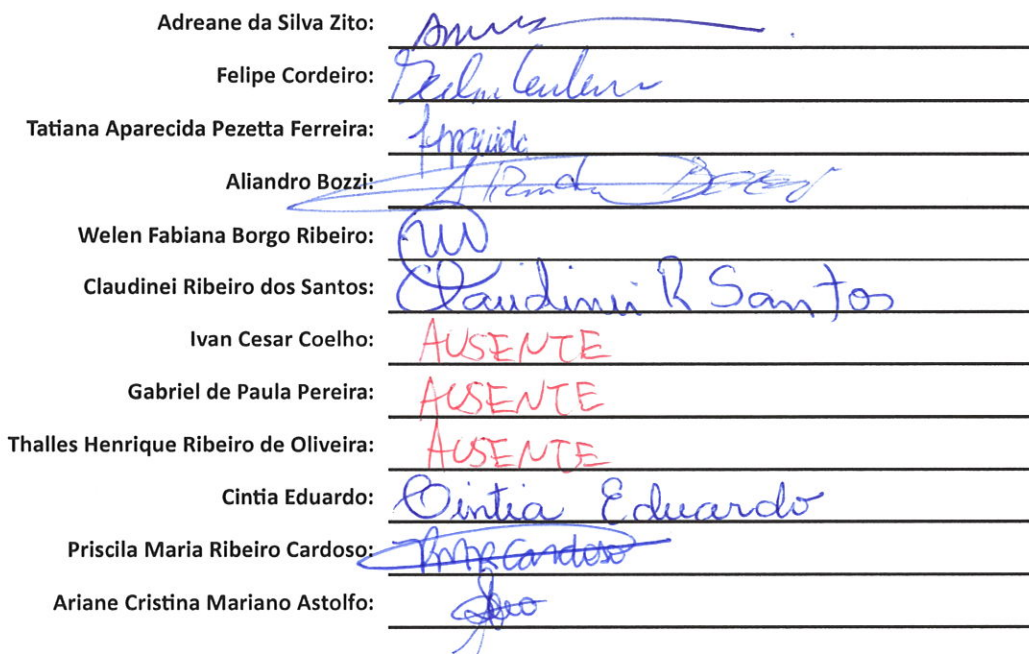 Adreane da Silva Zito:
Felipe Cordeiro:
Tatiana Aparecida Pezetta Ferreira: Aparecida
Aliandro Bozzi:
Welen Fabiana Borgo Ribeiro:
Claudinei Ribeiro dos Santos: Claudinei R Santos
Ivan Cesar Coelho: AUSENTE
Gabriel de Paula Pereira: AUSENTE
Thalles Henrique Ribeiro de Oliveira: AUSENTE
Cintia Eduardo: Cintia Eduardo
Priscila Maria Ribeiro Cardoso: PMRCardoso
Ariane Cristina Mariano Astolfo: